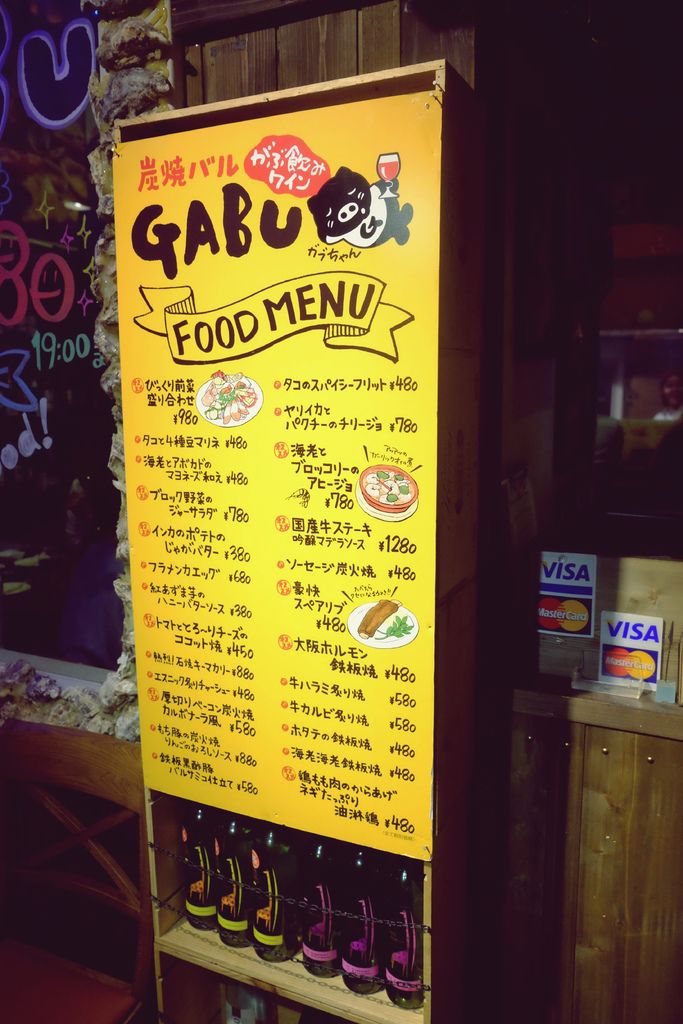 炭焼バル
がぶ飲み
ワイン
GABU
ガブちゃん
FOOD MENU
びっくり前菜
盛り合わせ
¥980
タコと4種豆マリネ ¥480
海老とアボカドの
マヨネーズ和え ¥480
ブロック野菜の
ジャーサラダ ¥780
インカのポテトの
じゃがバター ¥380
フラメンカエッグ ¥680
紅あずま芋の
ハニーバターソース ¥380
トマトととろ〜りチーズの
ココット焼 ¥450
熱烈!石焼キーマカリー ¥880
エスニック炙りチャーシュー ¥480
厚切りベーコン炭火焼
カルボナーラ風 ¥580
もち豚の炭火焼
りんごのおろしソース ¥880
鉄板黒酢豚
バルサミコ仕立て ¥580
タコのスパイシーフリット ¥480
ヤリイカと
パクチーのチリージョ ¥780
海老と
ブロッコリーの
アヒージョ
¥780
国産牛ステーキ
吟醸マデラソース ¥1280
ソーセージ炭火焼 ¥480
豪快
スペアリブ
¥480
大阪ホルモン
鉄板焼 ¥480
牛ハラミ炙り焼 ¥580
牛カルビ炙り焼 ¥580
ホタテの鉄板焼 ¥480
海老海老鉄板焼 ¥480
鶏もも肉のからあげ
ネギたっぷり
油淋鶏 ¥480
19:00
VISA
MasterCard
VISA
MasterCard